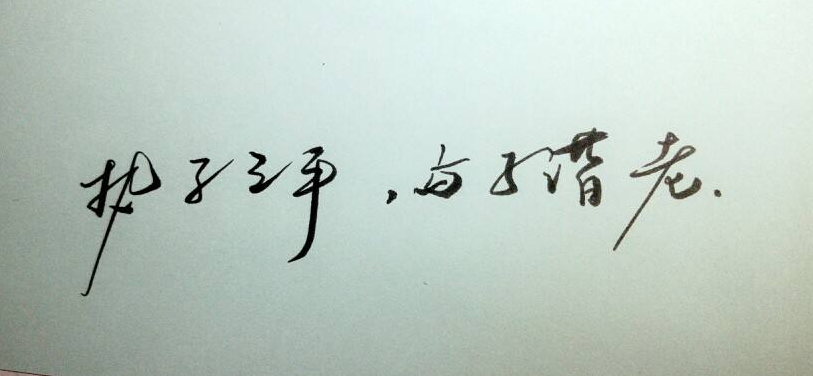 执子之手,与子偕老.